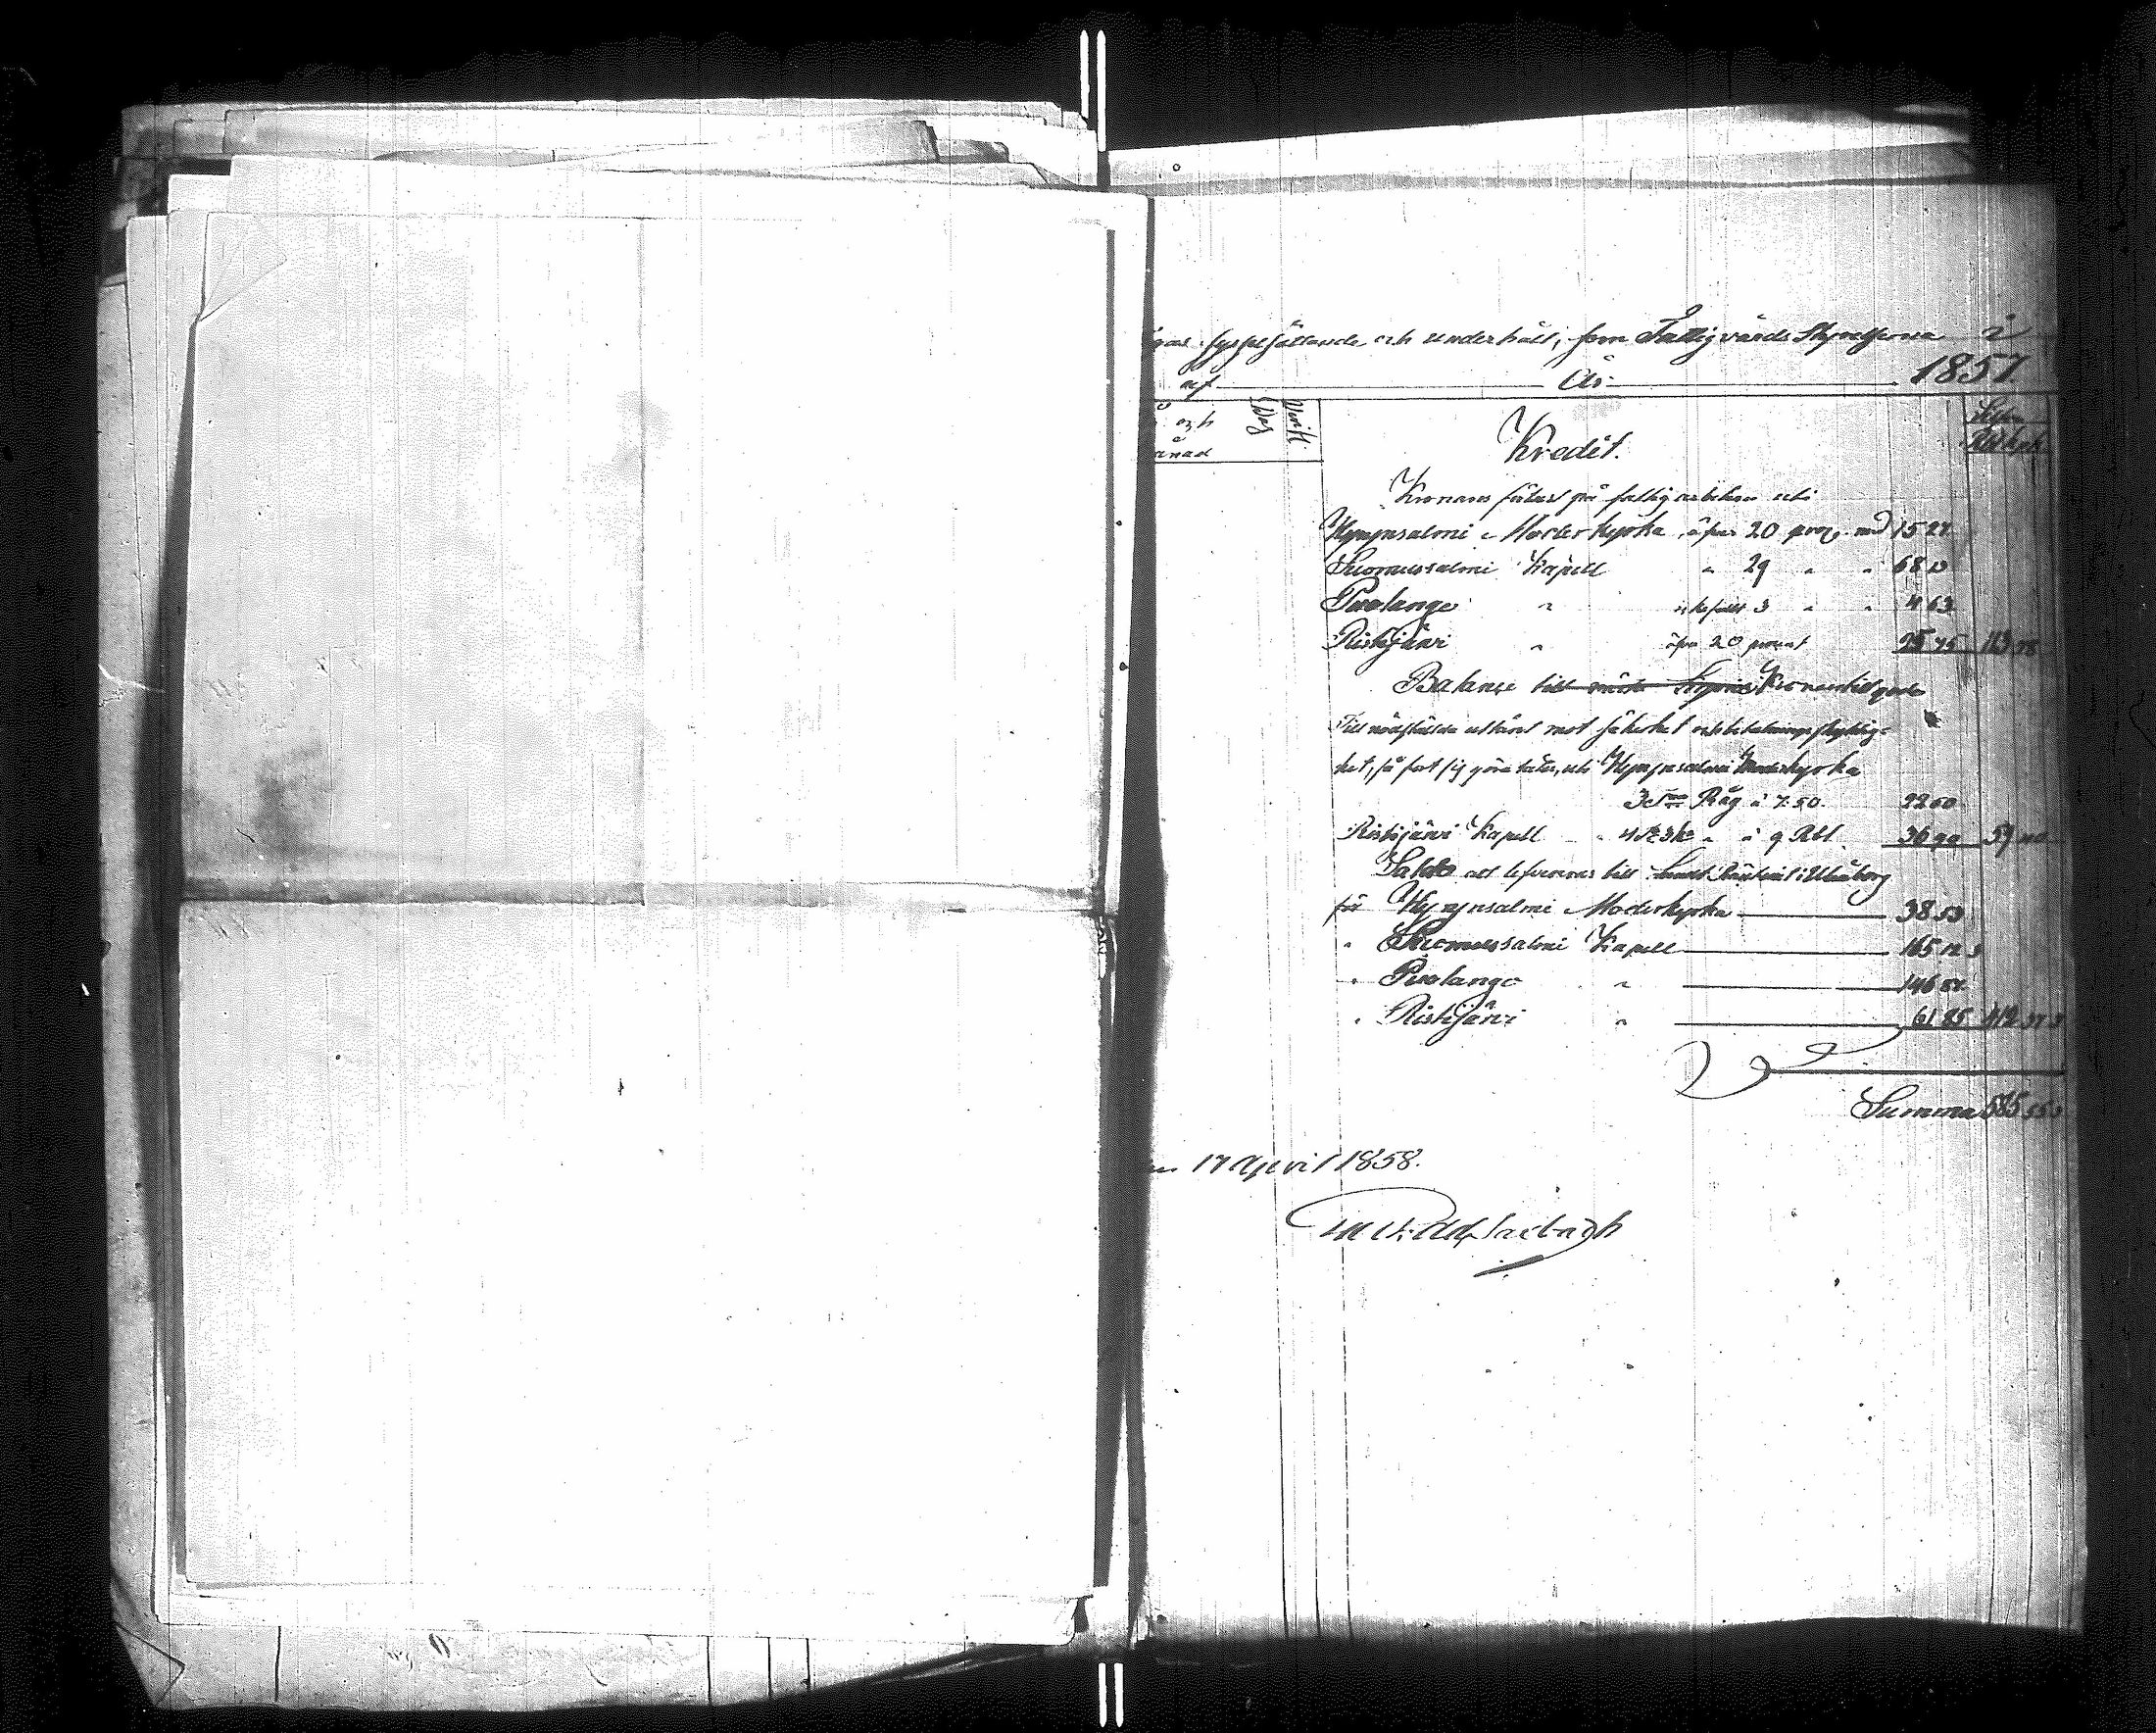 sysselsättande och underhåll, som Fattigvårds Styrelserna i
År 1857.
och Dag Verif.
ånad
Kredit.
Silfver
Rub. kop.
Kronans förlust på fattig arbeten uti
Hyrynsalmi Moderkyrka, öfver 20 proc. med 15 27.
Suomussalmi Kapell " 29 " " 68 13
Puolango " 3 " " 4 63
Ristijärvi " öfver 20 procent 25 75 113 78
Balance till Kronans tillgodo
Till nödstälda utlånt mot säkerhet och betalningsskyldig-
het, så fort sig göra låter, uti Hyrynsalmi Moderkyrka
3 Råg à 7:50. 22 50
Ristijärvi Kapell " 4 " à 9 Rbl. 36 90 59 40
Saldo att levereras till Ränteriet i Uleåborg
för Hyrynsalmi Moderkyrka 38 53
" Suomussalmi Kapell 165 12
" Puolango " 146 87.
" Ristijärvi " 61 85 412 37
Summa 585 55
17 April 1858.